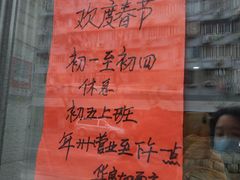 欢度春节
初一至初四
休息
初五上班
年卅营业至下午一点